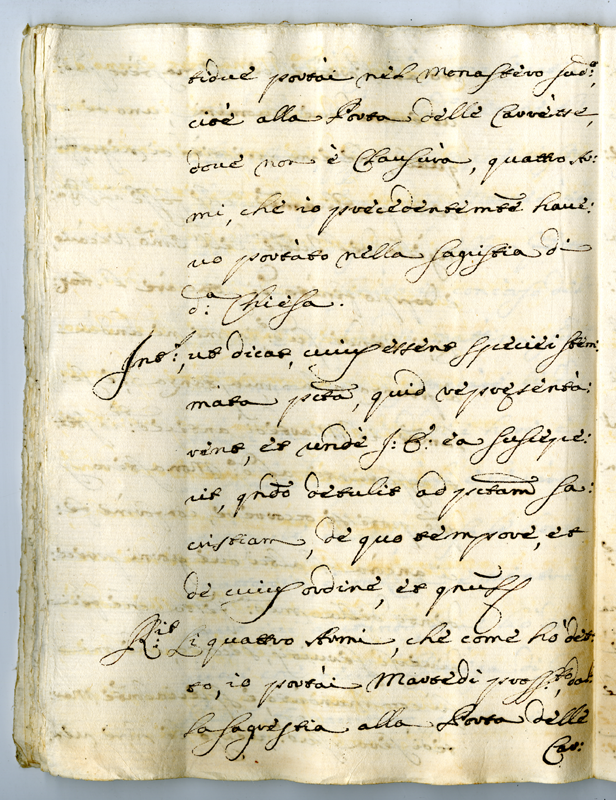 tidue portai nel Monastero sud.º,
cioè alla Porta delle Carrette,
dove non è Clausura, quattro Ar:
mi, che io precedentemte have:
vo portato nella sagristia di
d.a Chiesa.
Int.s, ut dicat, cuius essent speciei stem:
mata pcta, quid repręsenta:
rent, et unde I: C: ea suscepe:
rit, qndo detulit ad pctam sa:
cristiam, de quo tempore, et
de cuius ordine, et
R.it Li quattro Armi, che come hò det:
to, io portai Martedi pross.to, dal
la sagrestia alla Porta delle
Car: